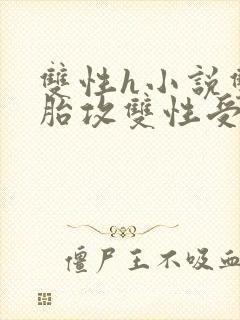 雙性h小説雙
胎攻雙性受
僵尸王不吸血